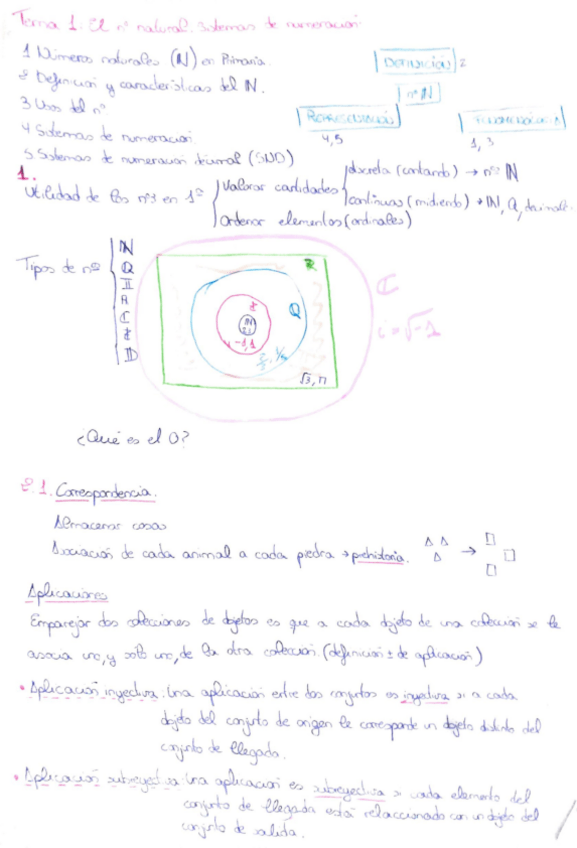 Tema 1. El nº natural. Sistemas de numeración
1 Números naturales (ℕ) en Primaria.
2 Definición y características del ℕ.
3 Usos del nº
4 Sistemas de numeración
5 Sistemas de numeración decimal (SND)
DEFINICIÓN 2
nº ℕ
REPRESENTACIÓN
4,5
1, 3
1.
Utilidad de los nºs en 1º
Valorar cantidades
discreta (contando) → nº ℕ
continuas (midiendo) → ℕ, Q,
Ordenar elementos (ordinales)
Tipos de nº
ℕ
Q
II
A
C
Z
D
R
C
Q
Z
ℕ
-1,1
√3, π
i = √-1
¿Qué es el 0?
2.1. Correspondencia.
Almacenar cosas
Asociación de cada animal a cada piedra → prehistoria.
Aplicaciones
Emparejar dos colecciones de objetos es que a cada objeto de una colección se le
asocia uno, y solo uno, de la otra colección. (definición 1 de aplicación)
• Aplicación inyectiva. Una aplicación entre dos conjuntos es inyectiva si a cada
objeto del conjunto de origen le corresponde un objeto distinto del
conjunto de llegada.
• Aplicación subreyectiva Una aplicación es subreyectiva si cada elemento del
conjunto de llegada está relaccionado con un objeto del
conjunto de salida.